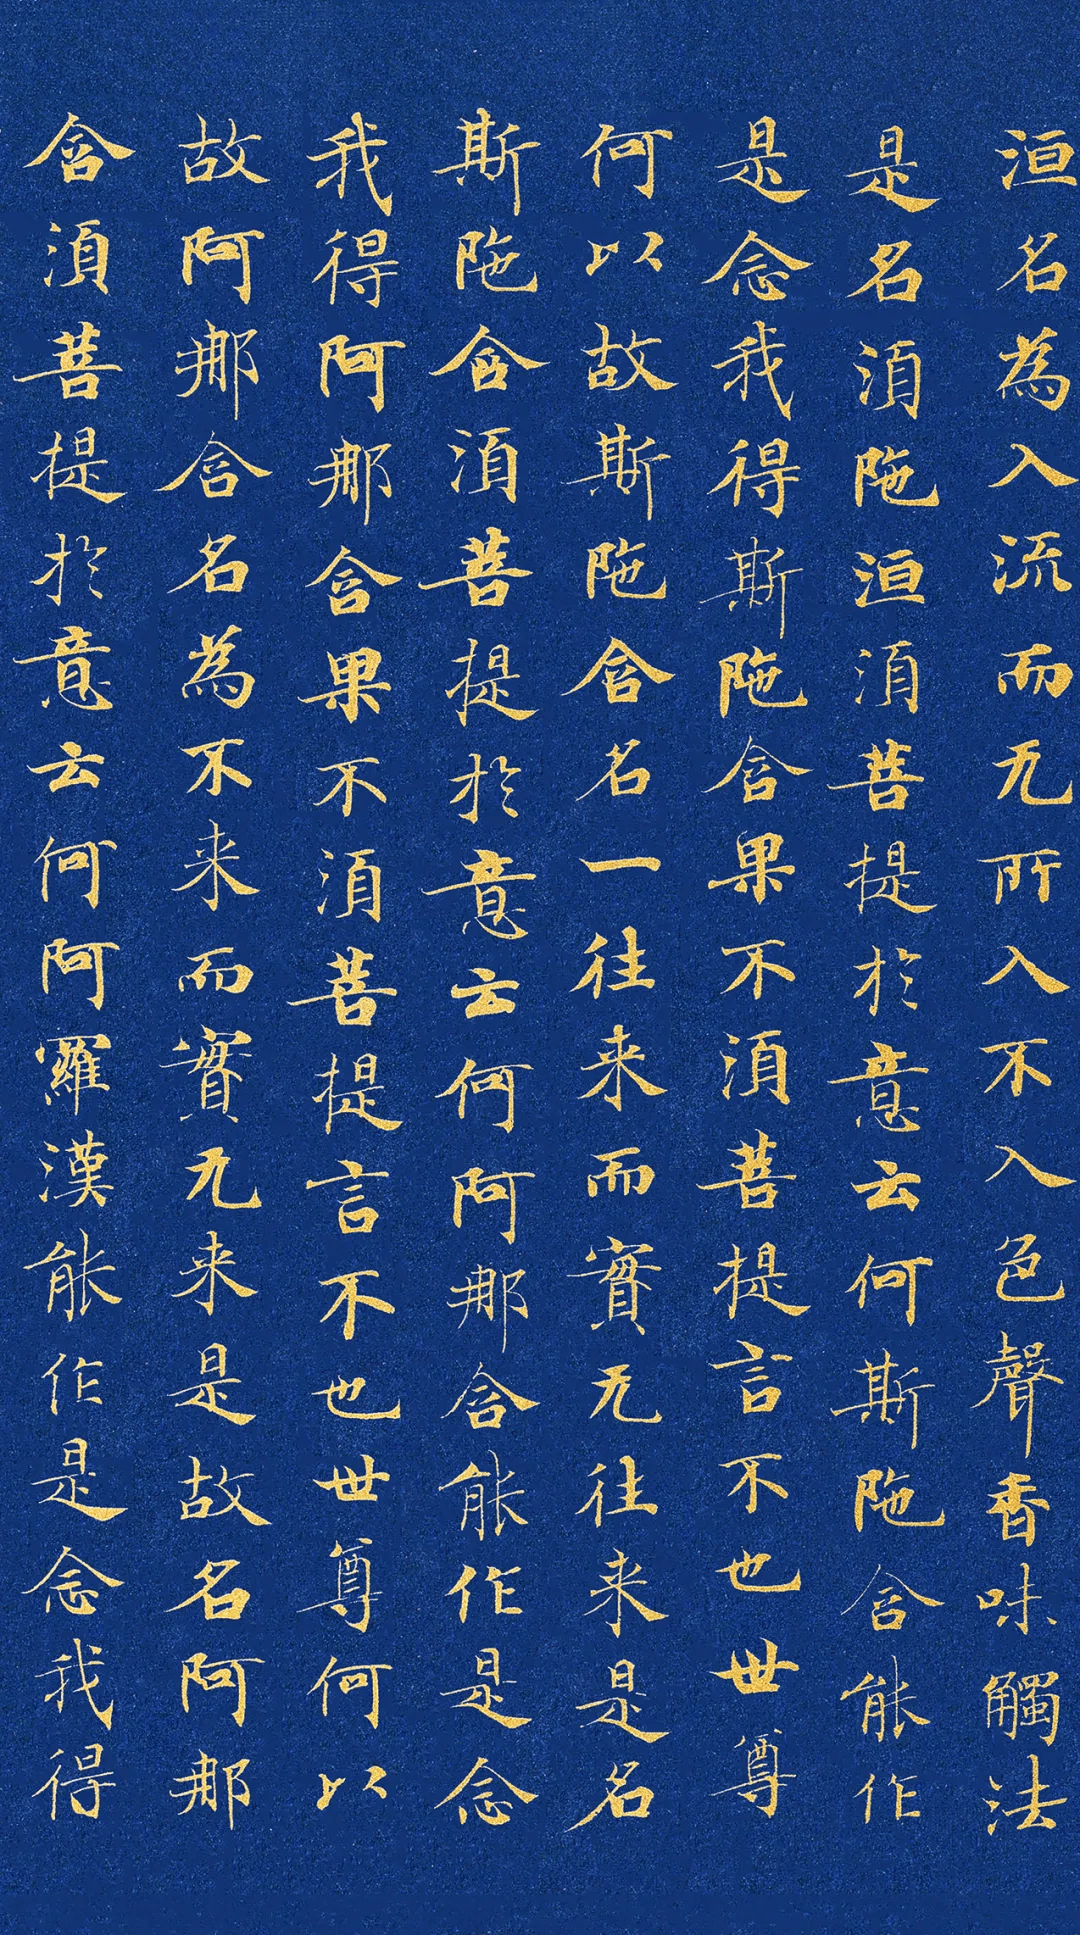 洹名為入流而无所入不入色聲香味觸法
是名湏陁洹湏菩提於意云何斯陁含能作
是念我得斯陁含果不湏菩提言不也世尊
何以故斯陁含名一往来而實无往来是名
斯陁含湏菩提於意云何阿那含能作是念
我得阿那含果不湏菩提言不也世尊何以
故阿那含名為不来而實无来是故名阿那
含湏菩提於意云何阿羅漢能作是念我得